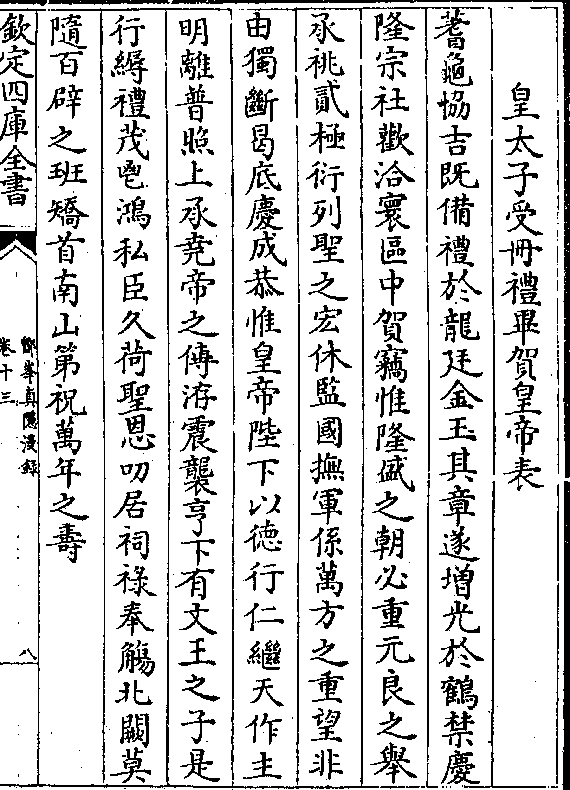 皇太子受冊禮畢賀皇帝表
蓍龜恊吉既備禮於龍廷金玉其章遂増光於鶴禁慶
隆宗社歡洽寰區中賀竊惟隆盛之朝必重元良之舉
承祧貳極衍列聖之宏休監國撫軍係萬方之重望非
由獨斷曷底慶成恭惟皇帝陛下以徳行仁繼天作主
明離普照上承堯帝之傳洊震襲亨下有文王之子是
行縟禮茂鬯鴻私臣久荷聖恩叨居祠祿奉觴北闕莫
隨百辟之班矯首南山第祝萬年之壽
欽定四庫全書
鄮峯真隱漫録
卷十三
八